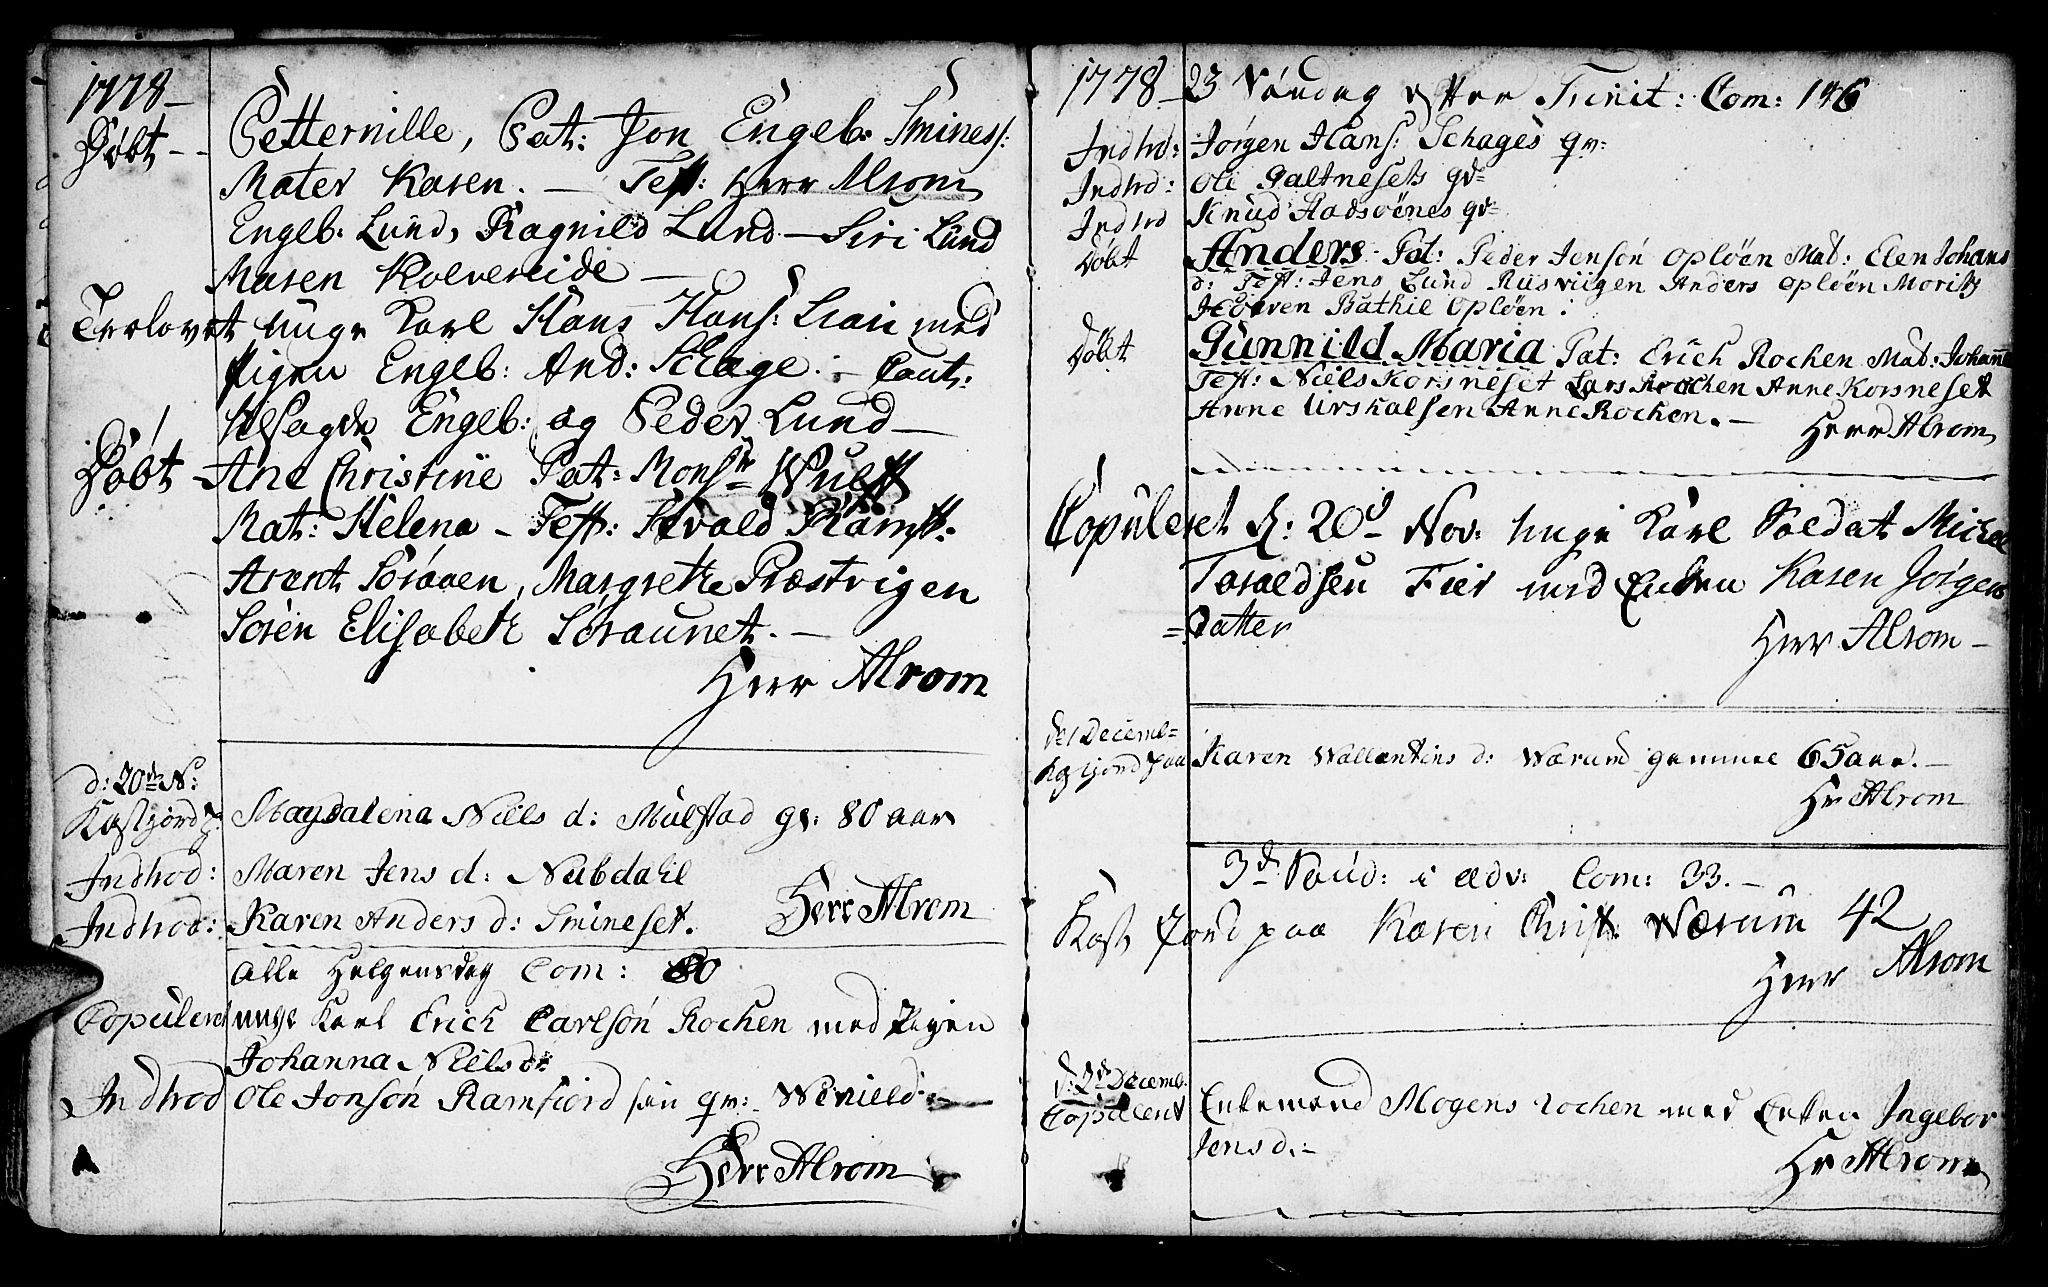 1778
Døbt - Petternille, Pat: Jon Engeb: Sminess:
Mater Karen. — Test: Herr Alrom
Engeb: Lund, Ragnild Lund — Siri Lund
Maren Kolvereide —
Trolovet unge Karl Hans Hans: med
Pigen Engeb: And: Schage. — Caut:
Engeb: og Peder Lund —
Døbt - Ane Christine Pat: Mons:r Wulff
Mat: Helena - Test: Sivald Ramst:
Arent Søraaen, Margrethe Præstvigen
Søren Elisabeth Søraunet. —
Herr Alrom
d: 20de N:
Kast jord p: Magdalena Niels d: Mulstad gl: 80 aar
Indtrod: Maren Jens d: Nubdahl
Indtrod: Karen Anders d: Smineset. Herr Alrom
Alle Helgensdag Com: 80
Copuleret unge Karl Erich Carlsøn Rochen med Pigen
Johanna Nielsd:
Indtrod Ole Jonsøn Ramfiord sin qv:
Herr Alrom
1778 - 23 Søndag efter Trinit: Com: 146
Indtrd: Jørgen Hans: Schages qv:
Indtrd: Ole Galtnesets qv=
Indtrd Knud Aadsvenes qv=
Døbt Anders Pat: Peder Jensøn Opløen Mat: Elen Johans
d: Test: Jens Lund Riisviigen Anders Opløen Moritz
Bathil Opløen:
Døbt Gunnild Maria Pat: Erich Rochen Mat: Johanna
Test: Niels Korsneset Lars Rochen Anne Korsneset
Anne Urskalsen Anne Rochen. —
Herr Alrom
Copuleret d: 20d Nov: unge Karl Soldat Michel
Toraldsen Fier med Enken Karen Jørgens
=Datter
Herr Alrom —
d: 1 Decemb=
Kast jord paa Karen Wallentins d: Værum gammel 65 aar. —
Hr Alrom
3de Sønd: i Adv: Com: 33. —
Kast Jord paa Karen Christ: Værum 42
Herr Alrom
d: 2de Decemb:
Copuleret Enkemand Mogens Rochen med Enken Ingebor
Jens d. —
Hr Alrom